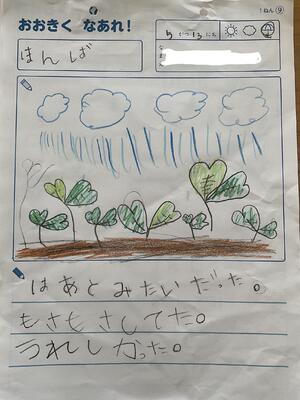 1ねん⑨
おおきく なあれ!
5がつ13にち
はんしば
はあとみたいだった。
もさもさしてた。
うれしかった。